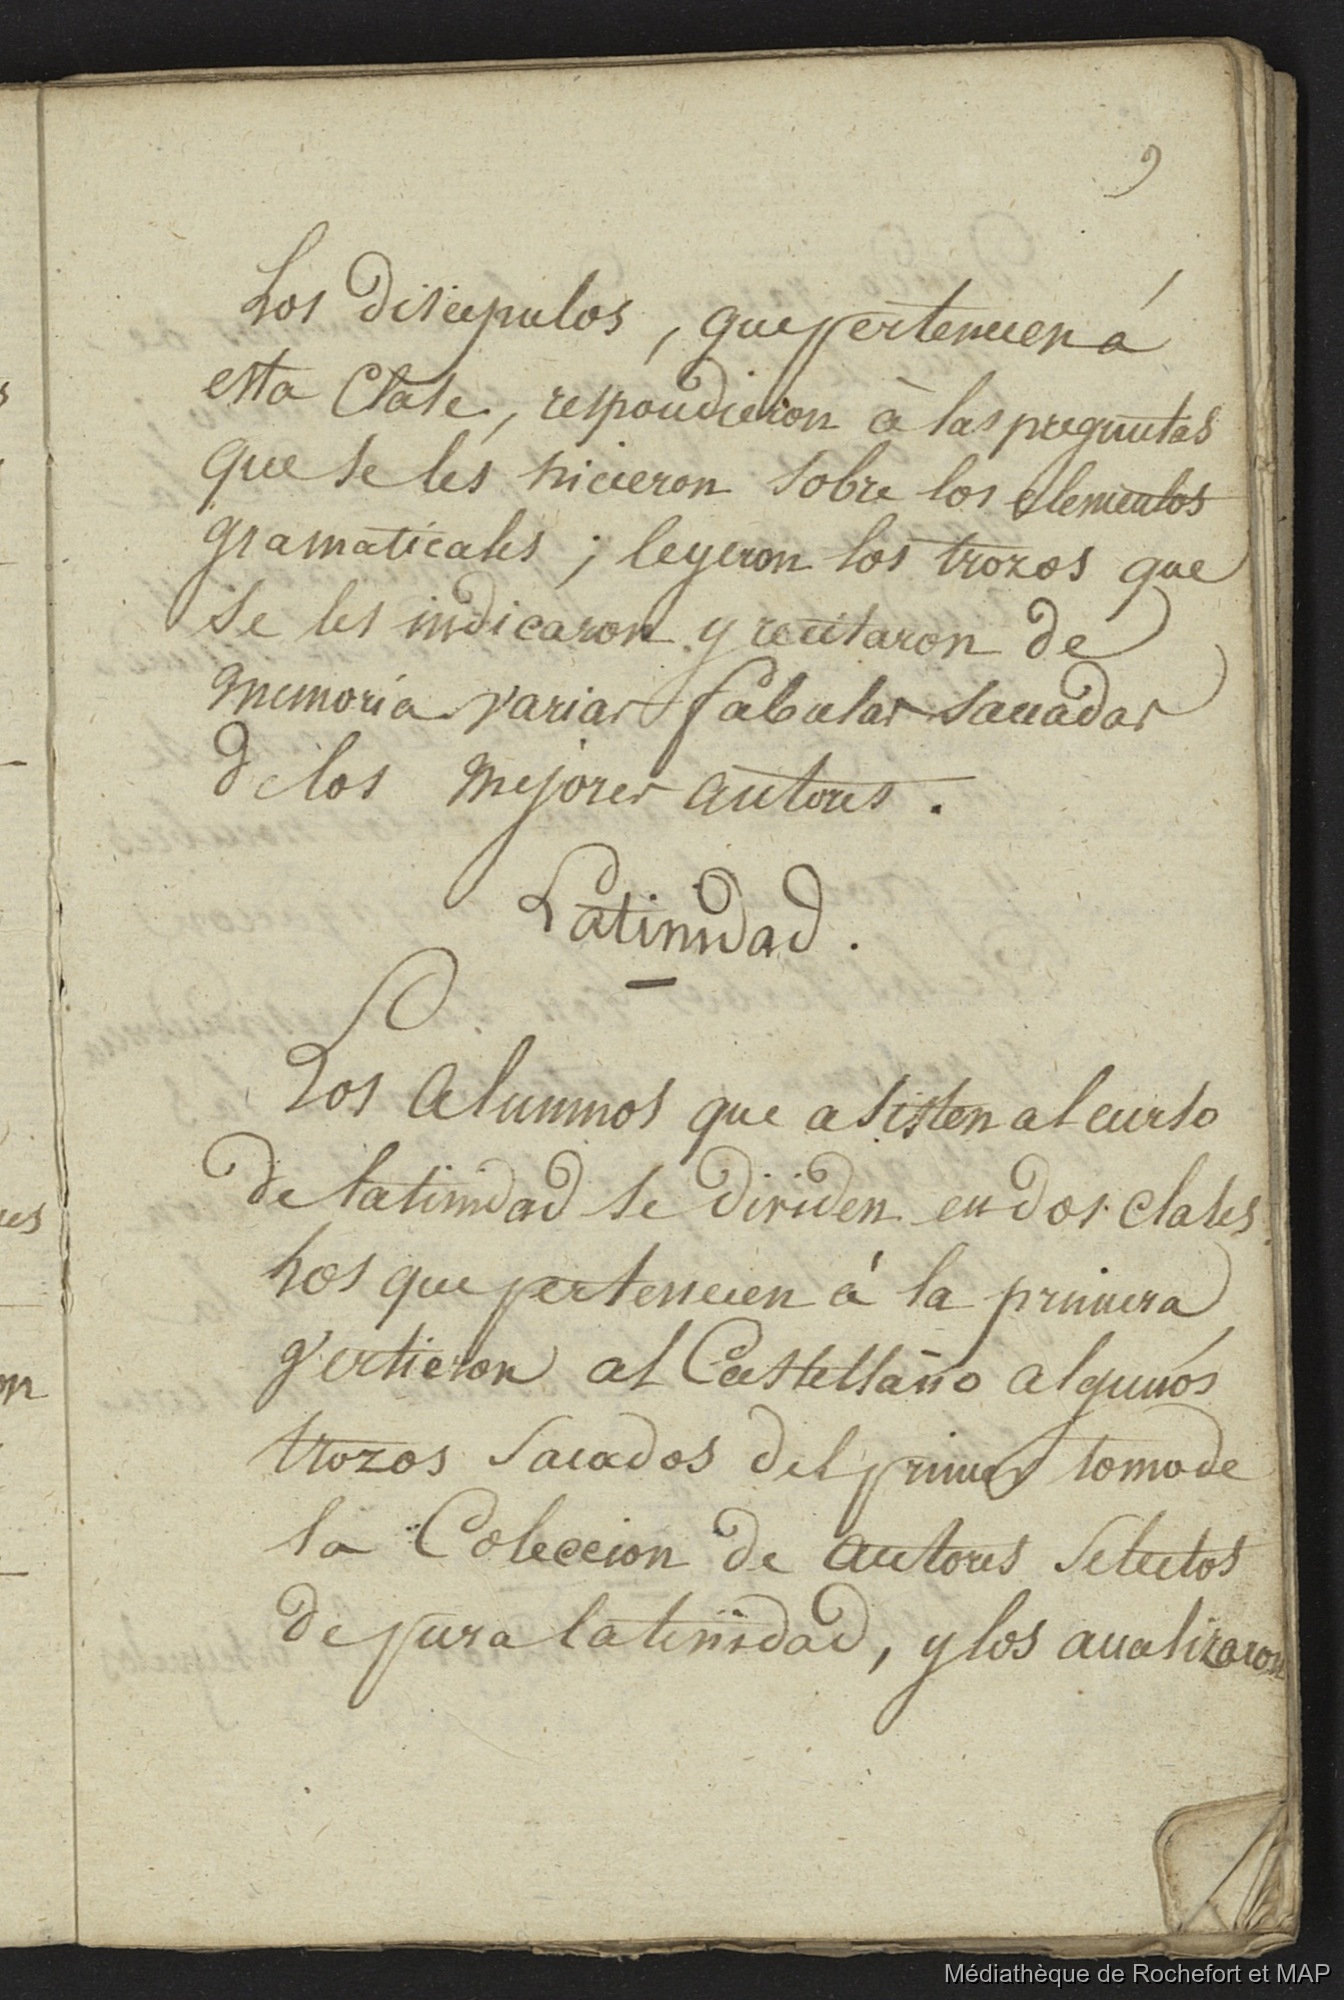 9
Los discipulos, que pertenecen á
esta Clase, respondieron à las preguntas
que se les hicieron sobre los elementos
gramaticales; leyeron los trozos que
se les indicaron y recitaron de
memoria varias fabulas sacadas
de los mejores autores.
Latinidad.
Los Alumnos que asisten al curso
de latinidad se dividen en dos clases.
Los que pertenecen á la primera
vertieron al Castellano algunos
trozos sacados del primer tomo de
la Coleccion de autores selectos
de pura latinidad, y los analizaron
es
on
Médiathèque de Rochefort et MAP